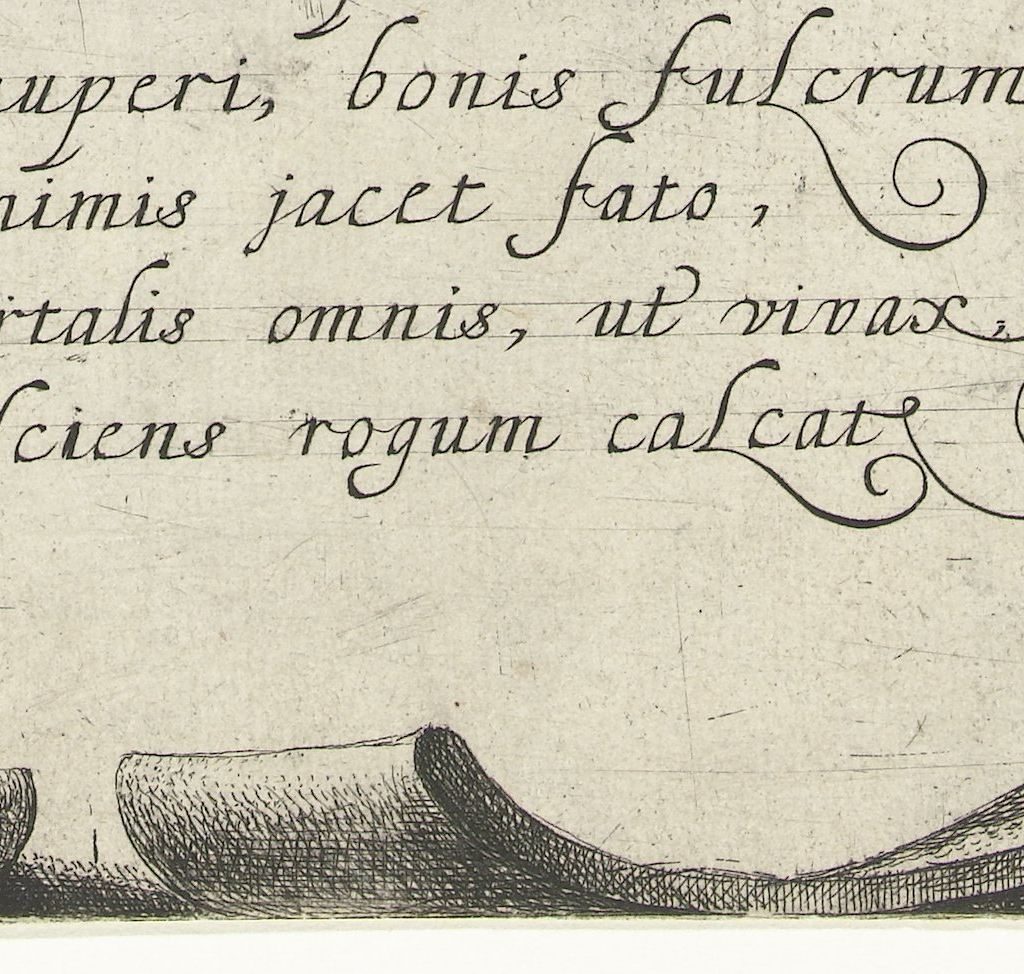 auperi, bonis fulcrum
nimis jacet fato,
rtalis omnis, ut vivax,
lciens rogum calcat